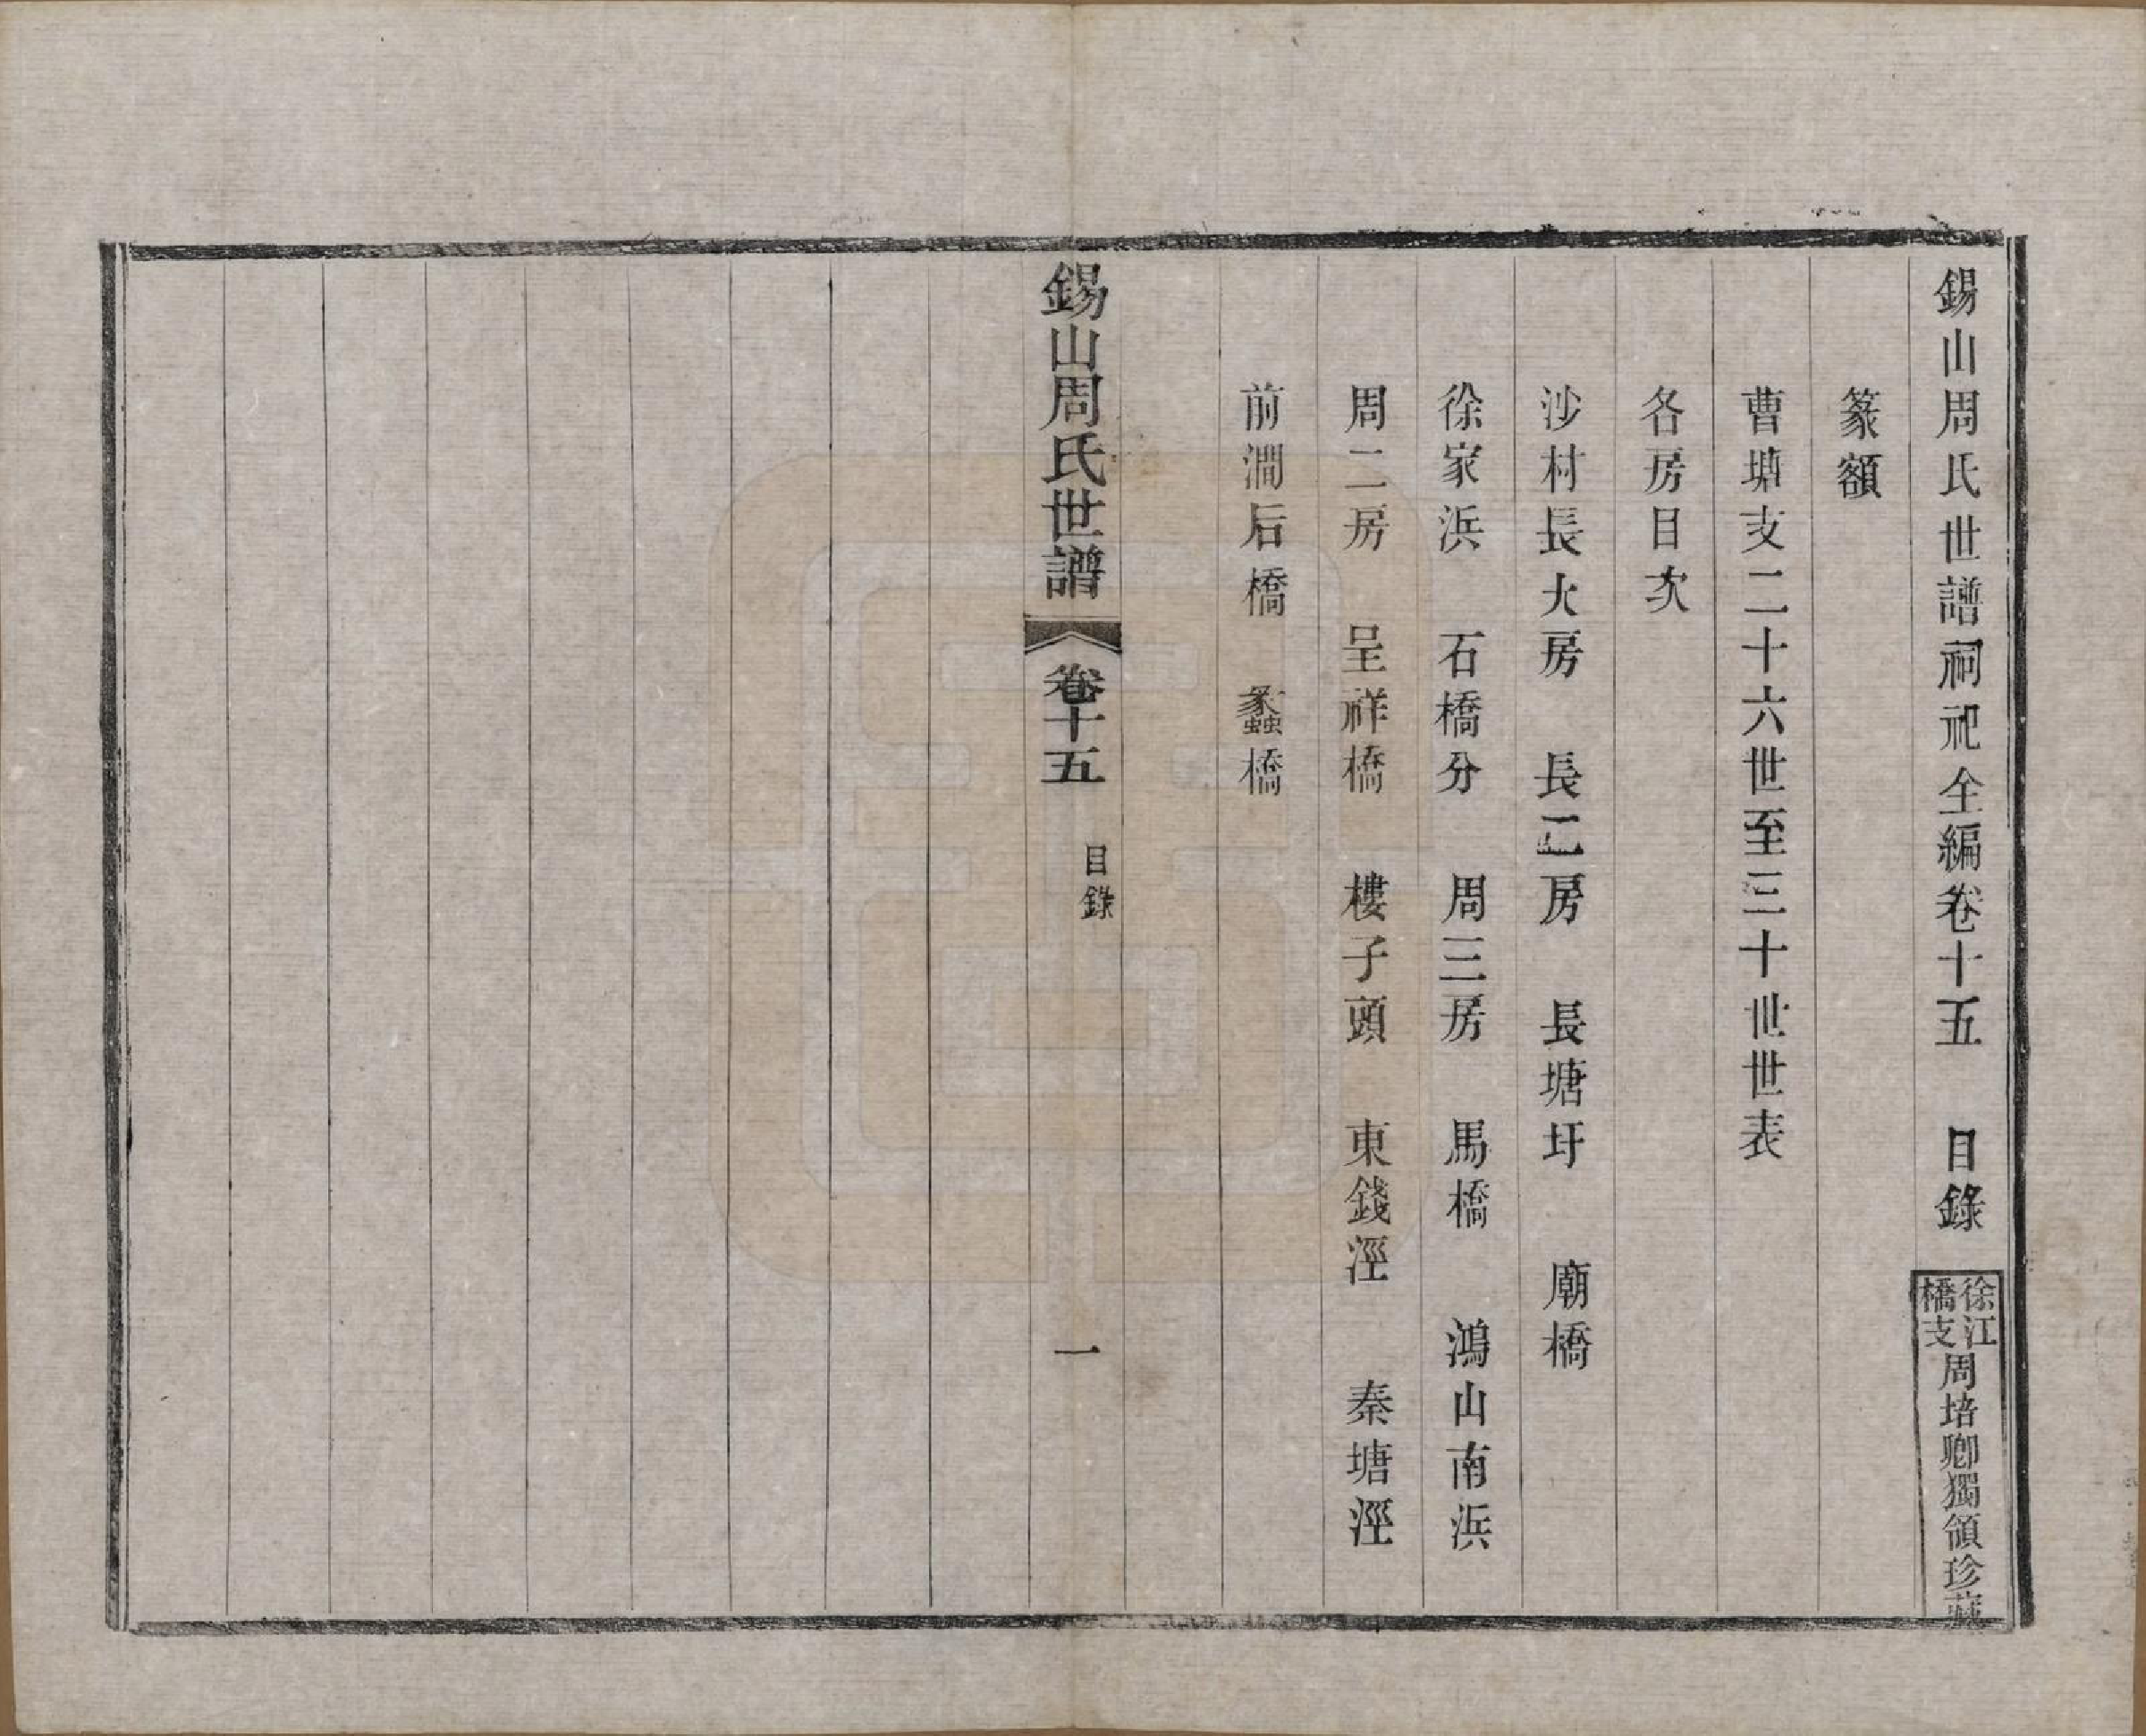 錫山周氏世譜祠祀全編卷十五　目錄
徐江橋支周培卿獨領珍藏
篆額
曹塘支二十六世至三十世世表
各房目次
沙村長大房　長二房　長塘圩　廟橋
徐家浜　石橋分　周三房　馬橋　鴻山南浜
周二房　呈祥橋　樓子頭　東錢涇　秦塘涇
前澗后橋　蠡橋
錫山周氏世譜　卷十五　目錄　一